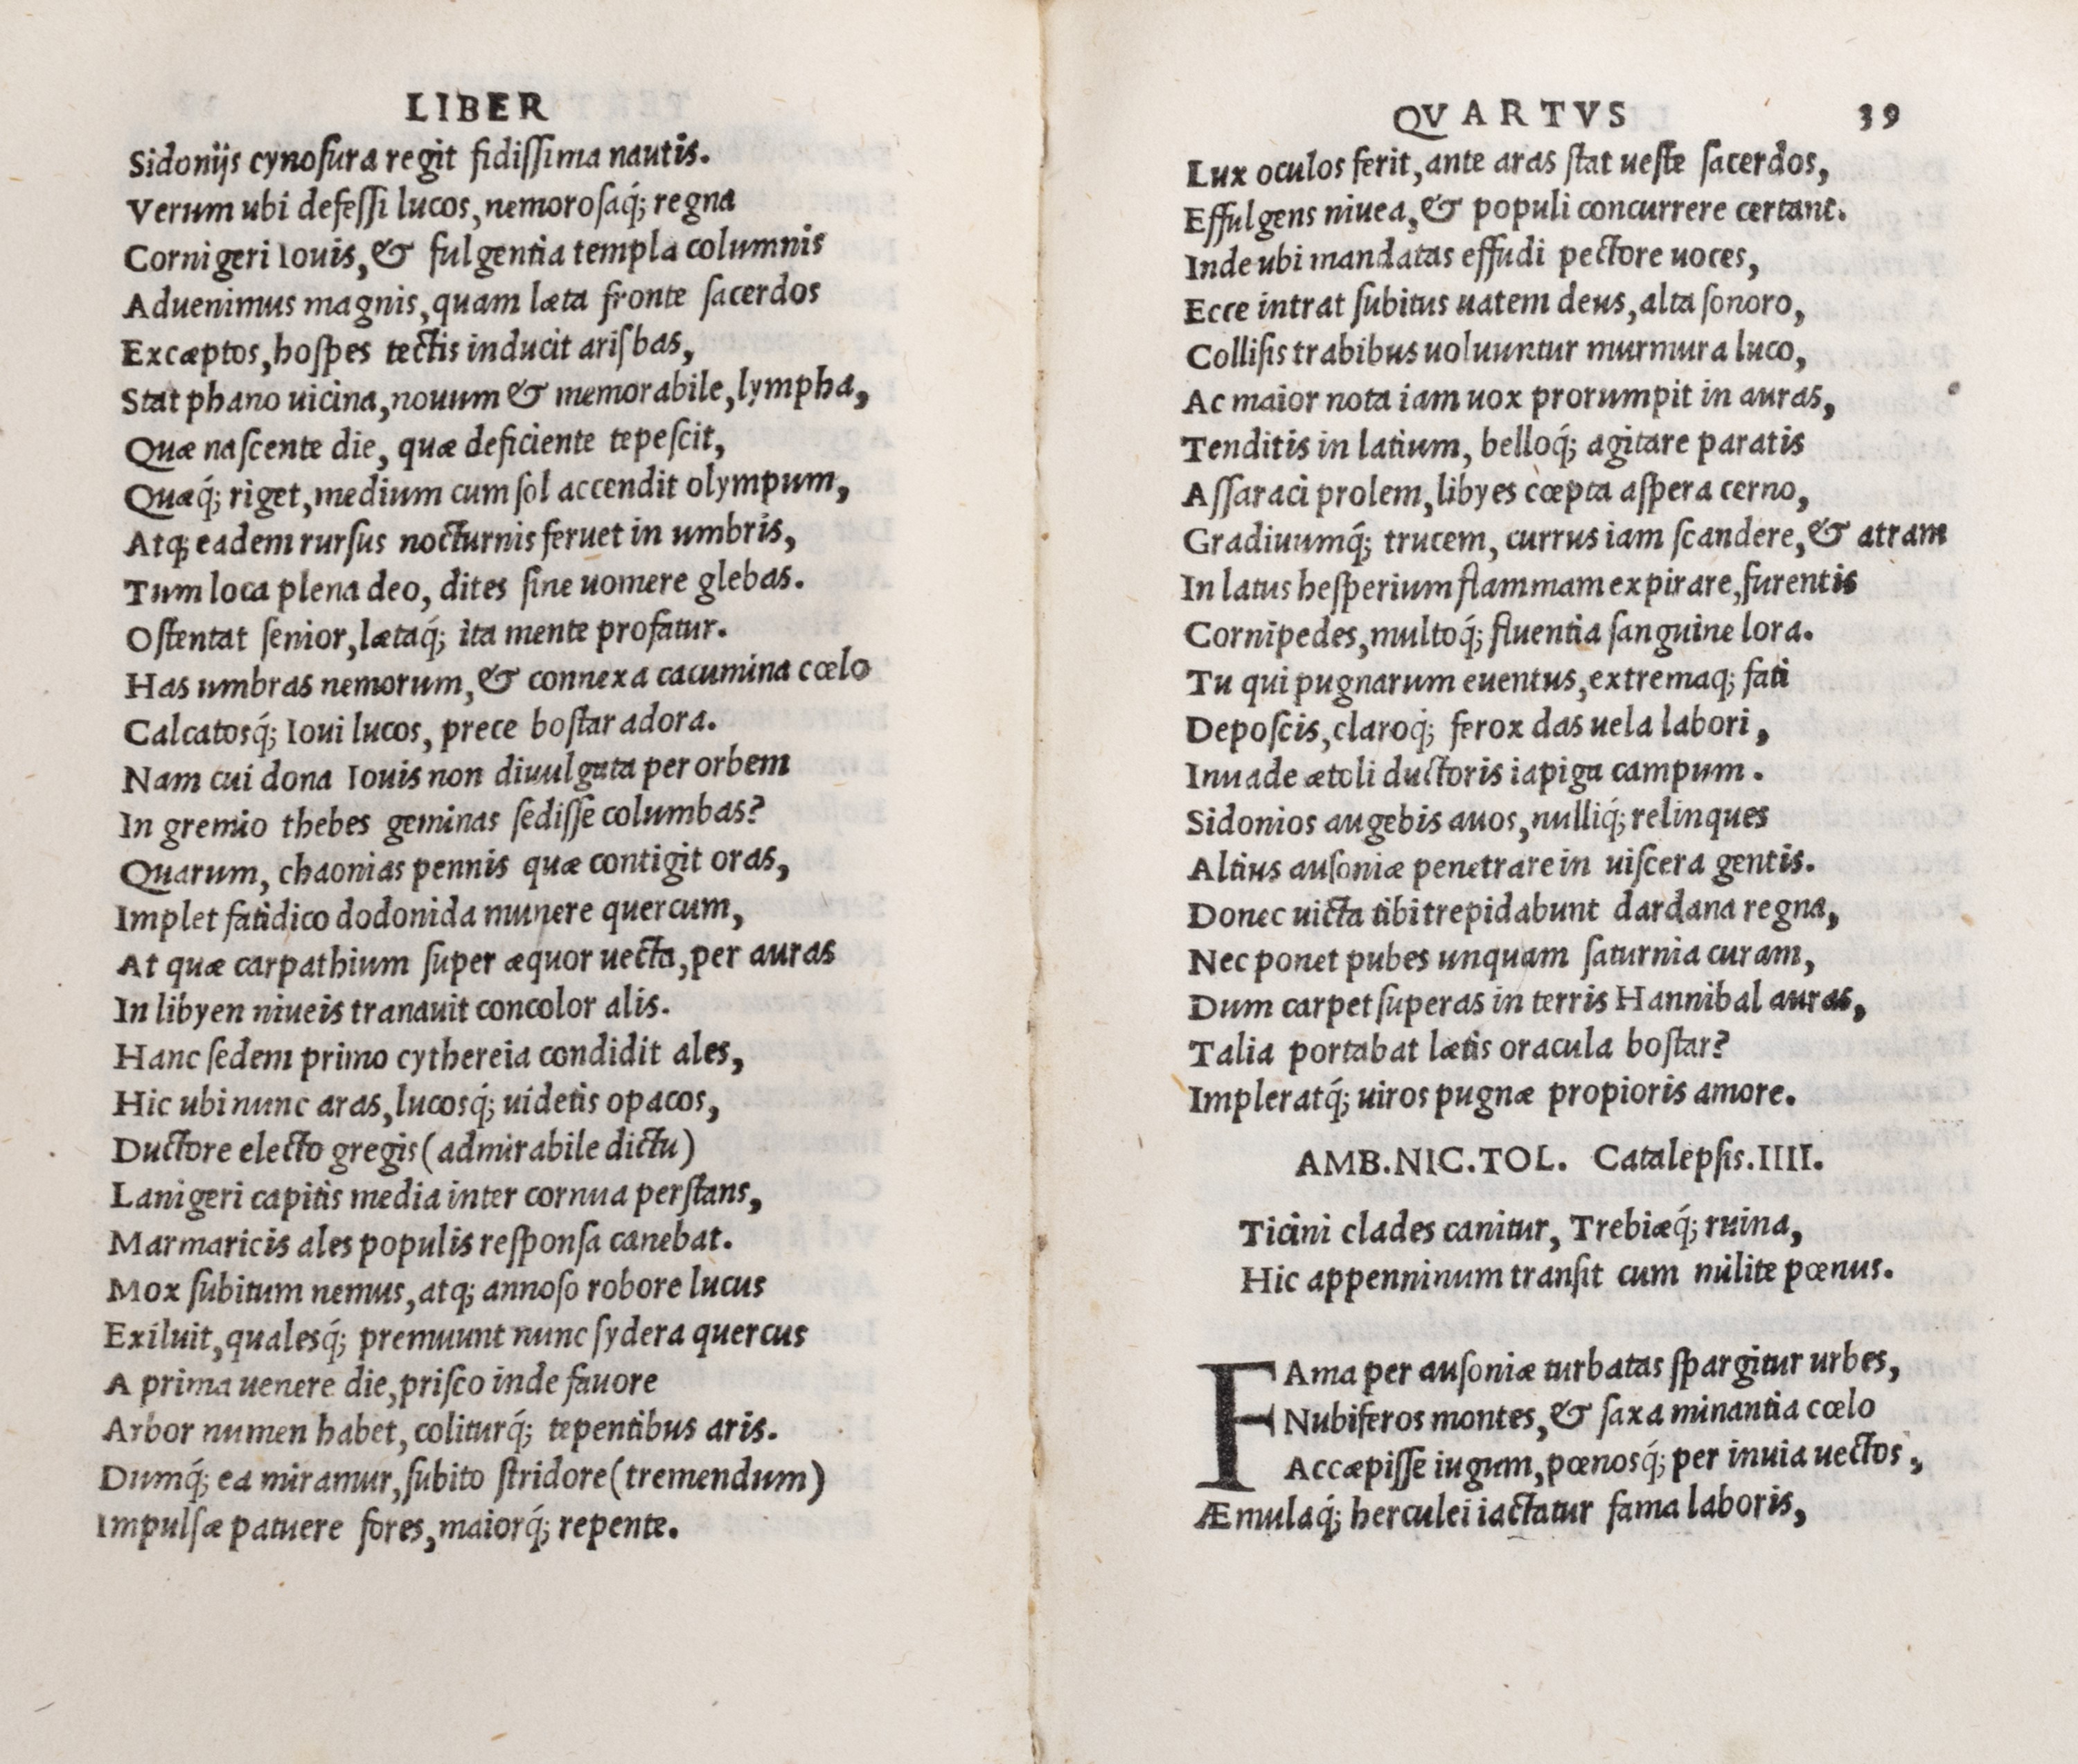 LIBER
Sidonijs cynoſura regit fidiſſima nautis.
Verum ubi defeſſi lucos, nemoroſaq́; regna
Cornigeri Iouis, & fulgentia templa columnis
Aduenimus magnis, quam læta fronte ſacerdos
Excæptos, hoſpes tectis inducit ariſbas,
Stat phano uicina, nouum & memorabile, lympha,
Quæ naſcente die, quæ deficiente tepeſcit,
Quæq́; riget, medium cum ſol accendit olympum,
Atq; eadem rurſus nocturnis feruet in umbris,
Tum loca plena deo, dites ſine uomere glebas.
Oſtentat ſenior, lætaq́; ita mente profatur.
Has umbras nemorum, & connexa cacumina cœlo
Calcatosq́; Ioui lucos, prece boſtar adora.
Nam cui dona Iouis non diuulgata per orbem
In gremio thebes geminas ſediſſe columbas?
Quarum, chaonias pennis quæ contigit oras,
Implet fatidico dodonida munere quercum,
At quæ carpathium ſuper æquor uecta, per auras
In libyen niueis tranauit concolor alis.
Hanc ſedem primo cythereia condidit ales,
Hic ubi nunc aras, lucosq́; uidetis opacos,
Ductore electo gregis (admirabile dictu)
Lanigeri capitis media inter cornua perſtans,
Marmaricis ales populis reſponſa canebat.
Mox ſubitum nemus, atq; annoſo robore lucus
Exiluit, qualesq́; premuunt nunc ſydera quercus
A prima uenere die, priſco inde fauore
Arbor numen habet, coliturq́; tepentibus aris.
Dumq́; ea miramur, ſubito ſtridore (tremendum)
Impulſæ patuere fores, maiorq́; repente.
QVARTVS 39
Lux oculos ferit, ante aras ſtat ueſte ſacerdos,
Effulgens niuea, & populi concurrere certant.
Inde ubi mandatas effudi pectore uoces,
Ecce intrat ſubitus uatem deus, alta ſonoro,
Colliſis trabibus uoluuntur murmura luco,
Ac maior nota iam uox prorumpit in auras,
Tenditis in latium, belloq́; agitare paratis
Aſſaraci prolem, libyes cœpta aſpera cerno,
Gradiuumq́; trucem, currus iam ſcandere, & atram
In latus heſperium flammam expirare, furentis
Cornipedes, multoq́; fluentia ſanguine lora.
Tu qui pugnarum euentus, extremaq; fati
Depoſcis, claroq́; ferox das uela labori,
Inuade ætoli ductoris iapiga campum.
Sidonios augebis auos, nulliq́; relinques
Altius auſoniæ penetrare in uiſcera gentis.
Donec uicta tibi trepidabunt dardana regna,
Nec ponet pubes unquam ſaturnia curam,
Dum carpet ſuperas in terris Hannibal auras,
Talia portabat lætis oracula boſtar?
Impleratq́; uiros pugnæ propioris amore.
AMB.NIC.TOL. Catalepſis.IIII.
Ticini clades canitur, Trebiæq́; ruina,
Hic appenninum tranſit cum milite pœnus.
FAma per auſoniæ turbatas ſpargitur urbes,
Nubiferos montes, & ſaxa minantia cœlo
Accæpiſſe iugum, pœnosq́; per inuia uectos,
Æmulaq́; herculei iactatur fama laboris,